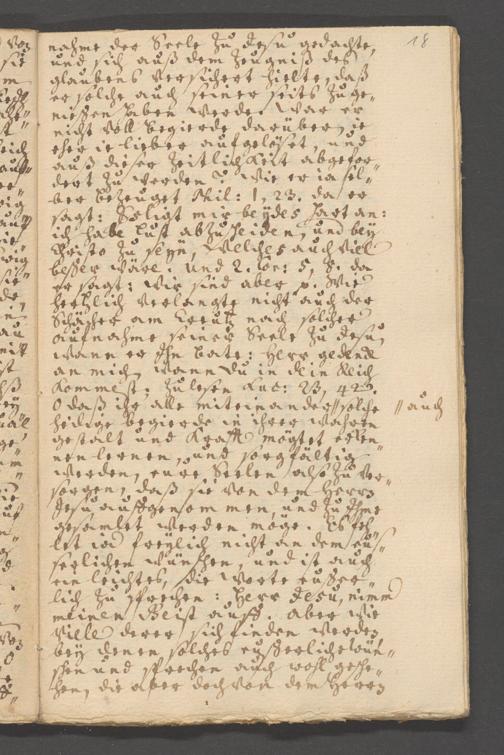 18
nahme der Seele zu Jesu gedachte,
und sich auß dem Zeugniß des
glaubens versichert hielte, daß
er solche auch seiner seits zuge-
niessen haben werde. War er
nicht voll begierde darüber, je
eher je lieber aufgelöset, und
auß dieser Zeitlichkeit abgefor-
dert zu werden? Wie er ja sel-
ber bezeuget Phil: 1, 23. da er
sagt: Es ligt mir beydes hart an:
ich habe lust abzuscheiden, und bey
Christo zu seyn, Welches auch viel
beßer wäre. Und 2. Cor: 5, 8. da
er sagt: Wir sind aber p. Wie
hertzlich verlangte nicht auch der
Schächer am Creutz nach solcher
aufnahme seiner Seele zu Jesu,
wann er Ihn bate: Herr gedenck
an mich, wann du in dein Reich
kommest. Zulesen Luc: 23, 42.
O daß ihr alle miteinander // solche
// auch
heilige begierde in ihrer wahren
gestalt und Krafft möget erken-
nen lernen, und sorgfältig
werden, eure Seelen also zu ver-
sorgen, daß sie von dem Herrn
Jesu aufgenommen, und zu Ihme
gesamlet werden möge. Es feh-
let ja freylich nicht an dem äus-
serlichen wünschen, und ist auch
ein leichtes, die worte äusser-
lich zu sprechen: Herr Jesu, nimm
meinen Geist auff. Aber wie
Viele derer sich finden werden
bey denen solches eusserliche wün-
schen und sprechen auch wohl gesche-
hen, die aber doch von dem Herrn